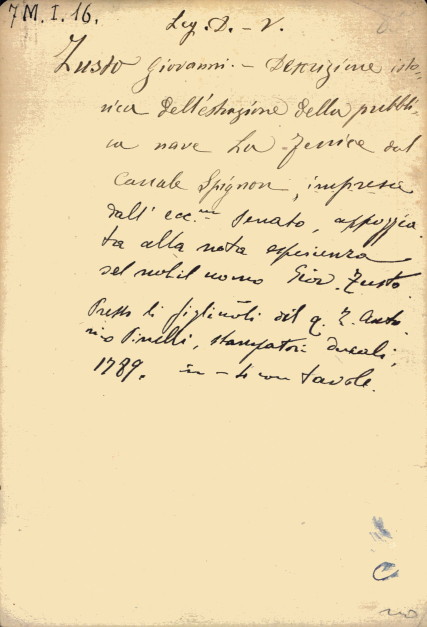 7 M. I. 16.
Leg. D. - V.
Zusto Giovanni. - Descrizione isto-
rica dell'estrazione della pubbli-
ca nave La Fenice dal
Canale Spignon, impresa
dall' ecc.mo Senato, appoggia
ta alla nota esperienza
del nobil uomo Giov. Zusto.
Presso li figliuoli del q. Z. Anto
nio Pinelli, stampatori ducali,
1789. in - 4 con tavole.